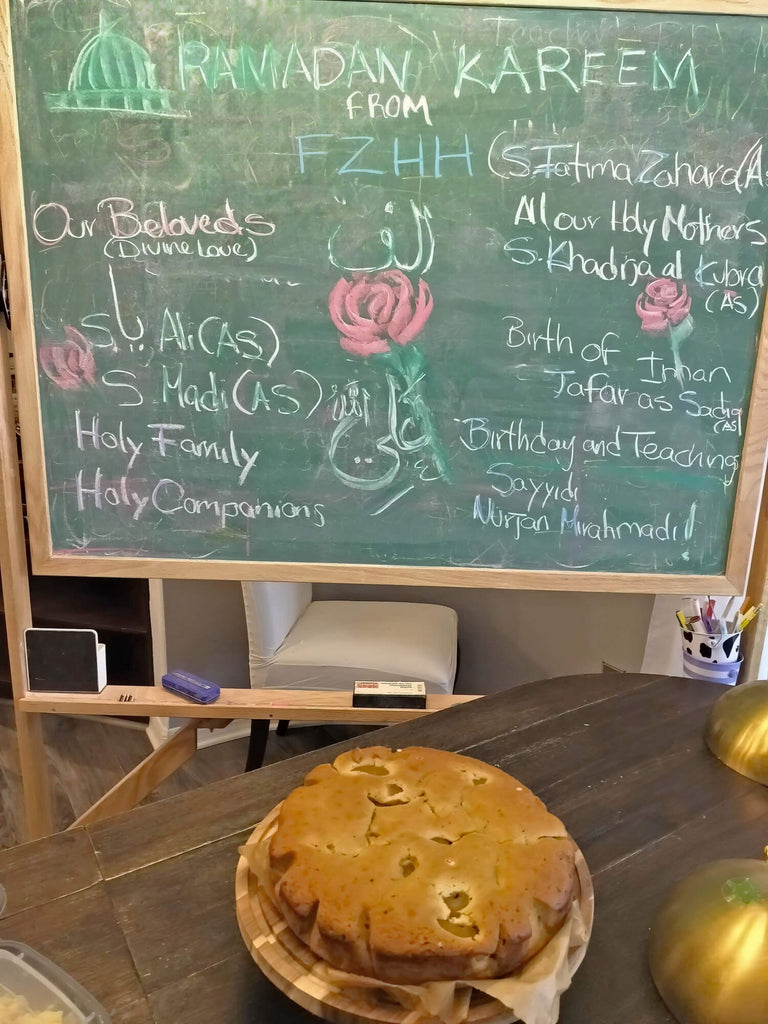 RAMADAN KAREEM
FROM
FZHH (S. Fatima Zahara(As
Our Beloveds
(Divine Love)
S. Ali (AS)
S. Madi (AS)
Holy Family
Holy Companions
الف
All our Holy Mothers
S. Khadija al Kubra
(AS)
Birth of Iman
Jafar as Sadiq
(AS)
Birthday and Teachings
Sayyidi
Nurjan Mirahmadi!